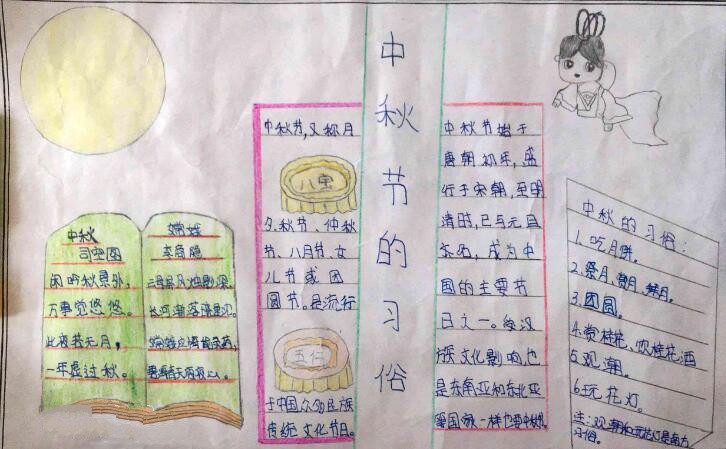 中秋节的习俗
中秋
司空图
闲吟秋景外，
万事觉悠悠。
此夜若无月，
一年虚过秋。
嫦娥
李商隐
云母屏风烛影深，
长河渐落晓星沉。
嫦娥应悔偷灵药，
中秋节，又称月
八宝
夕、秋节、仲秋
节、八月节、女
儿节或团
圆节。是流行
五仁
于中国众多民族
传统文化节日。
中秋节始于
唐朝初年，盛
行于宋朝，至明
清时，已与元旦
齐名，成为中
国的主要节
日之一。受汉
族文化影响，也
是东南亚和东北亚
中秋的习俗：
1.吃月饼。
2.祭月、赏月、拜月。
3.团圆。
4.赏桂花、饮桂花酒
5.观潮。
6.玩花灯。
习俗。